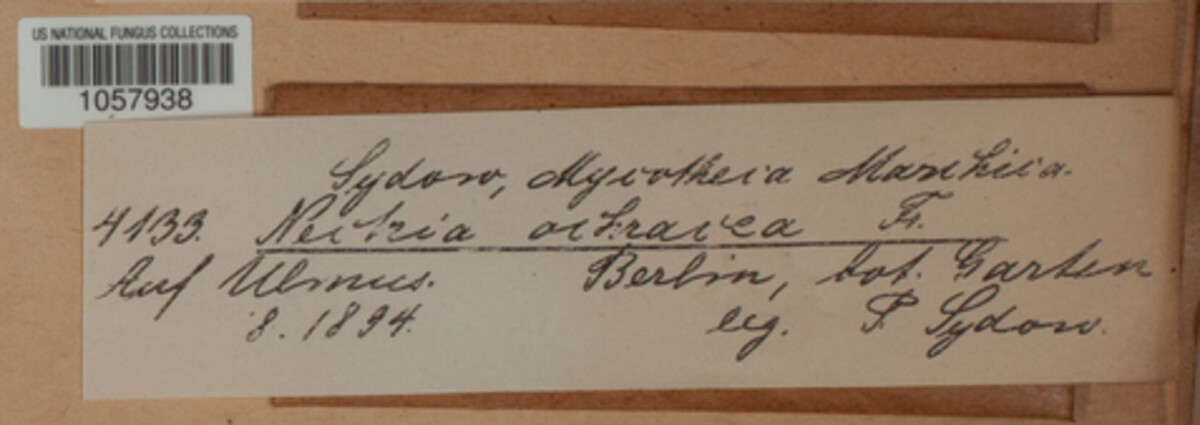 US NATIONAL FUNGUS COLLECTIONS
1057938
Sydow, Mycotheca Marchica.
4133. Nectria ochracea Fr.
Auf Ulmus. Berlin, bot. Garten
8. 1894. leg. P. Sydow.